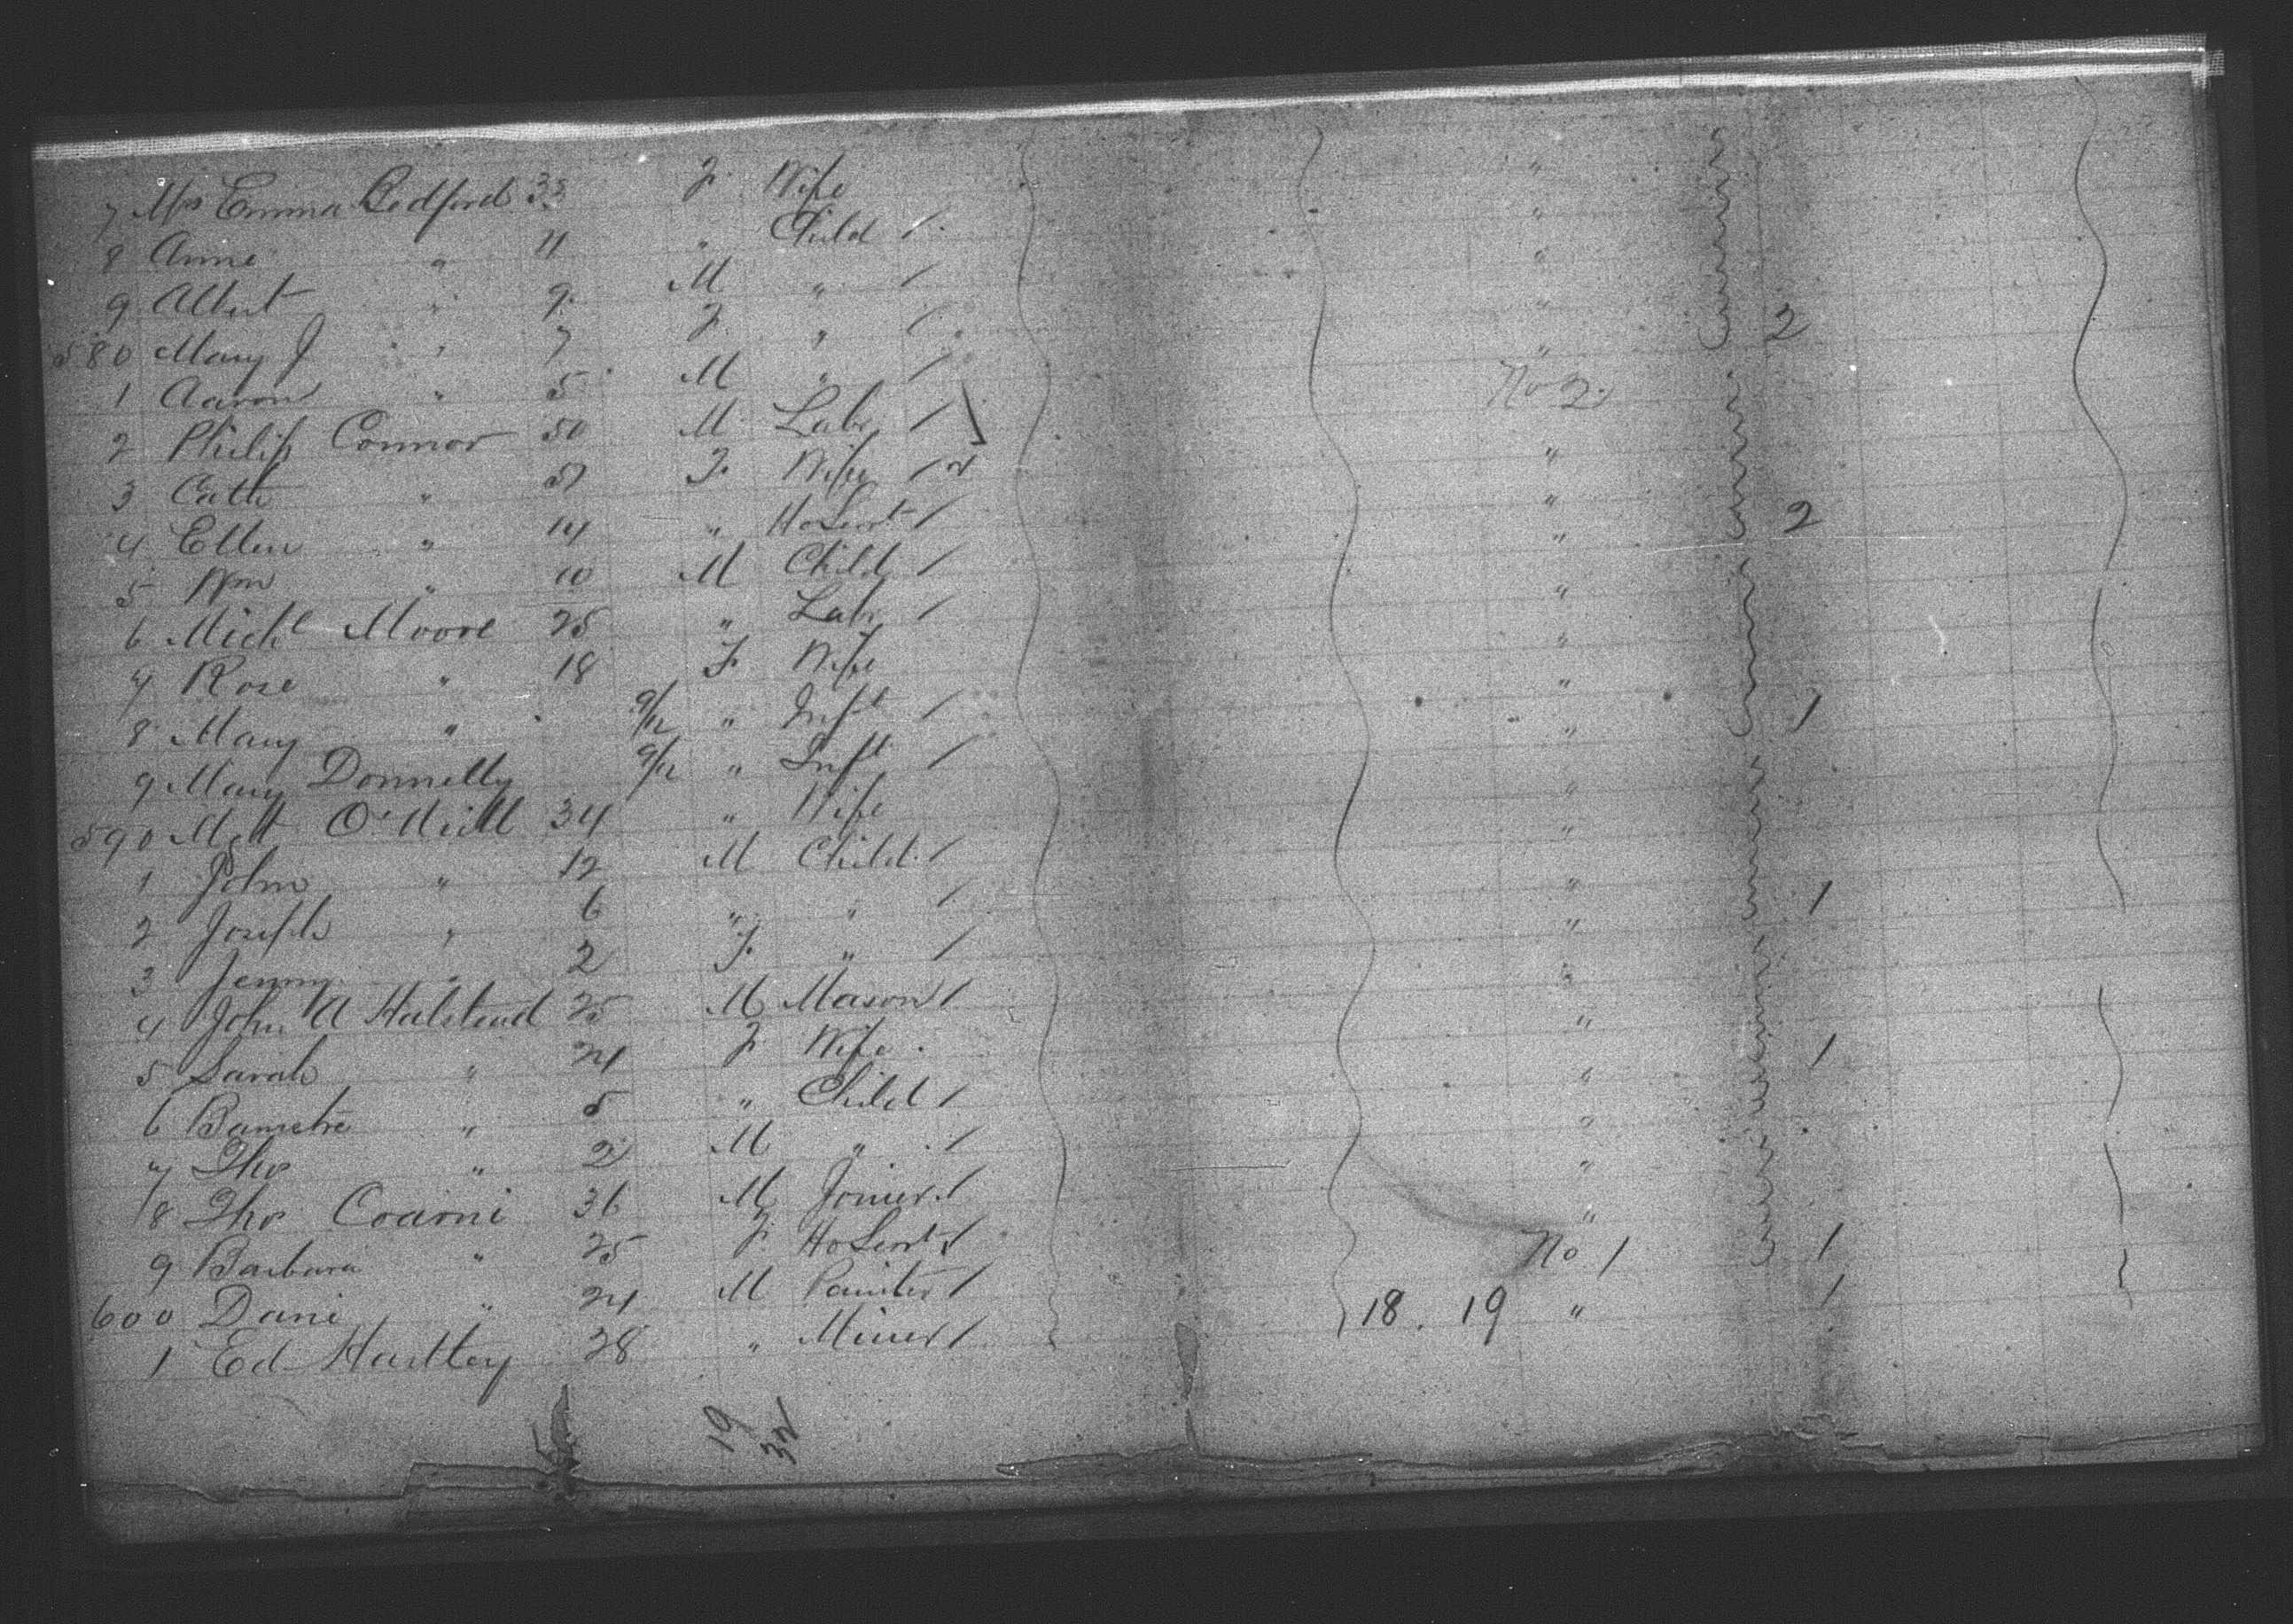 7 Mrs Emma Bedford 33 F. Wife "
8 Anne " 11 " Child / "
9 Albert " 9 M " / "
580 Mary J " 7 F. " / " 2
1 Aaron " 5 M " / "
2 Philip Connor 50 M. Labr / No 2.
3 Cath " 51 F. Wife / "
4 Ellen " 14 " Ho Servt / " 2
5 Wm " 10 M Child / "
6 Michl Moore 25 " Labr / "
7 Rose " 18 F. Wife "
8 Mary " 9/12 " Inft / " 1
9 Mary Donnelly 9/12 " Inft / "
590 Mgtt O'Neill 34 " Wife "
1 John " 12 M Child. / "
2 Joseph " 6 " " / " 1
3 Jenny " 2 F. " / "
4 John A Halstead 25 M Mason / "
5 Sarah " 24 F. Wife " 1
6 " 5 " Child / "
7 Tho " 2 M " / "
8 Tho 36 M Joiner / "
9 Barbara " 25 F. Ho Servt / " 1
600 Danl " 24 M Painter / No 1 1
1 Ed Hartley 28 " Miner / 18. 19 "
19
32